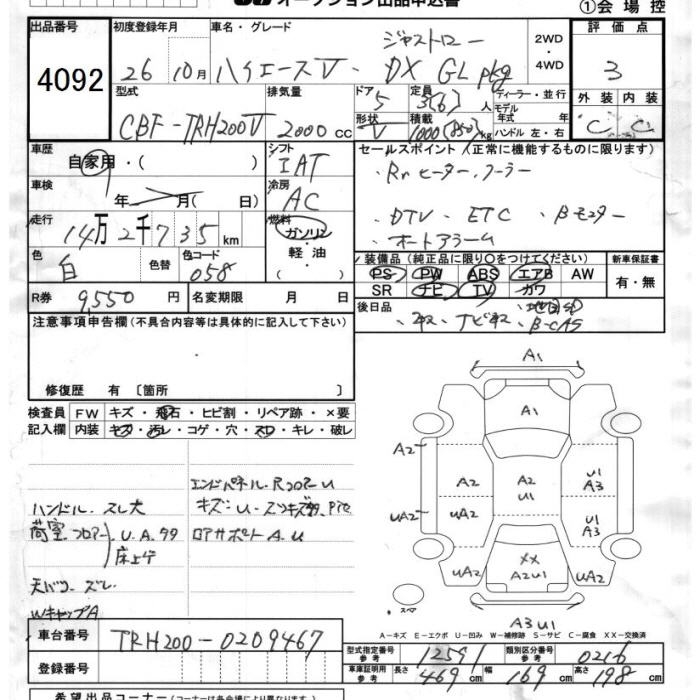 オークション出品申込書
①会場控
出品番号
4092
初度登録年月
26 10月
車名・グレード
ジャストロー
ハイエースV・DX GLpkg
2WD
・
4WD
評価点
3
外装 内装
C C
型式
CBF-TRH200V
排気量
2000 cc
ドア
5
形状
V
定員
3(6)人
積載
1000(850)kg
ディーラー・並行
モデル年式 年
ハンドル 左・右
車歴
自家用・( )
シフト
IAT
車検
年 月( 日)
冷房
AC
セールスポイント(正常に機能するものに限ります)
・Rrヒーター、クーラー
・DTV ・ETC ・Bモニター
・オートアラーム
走行
14万2千735km
燃料
ガソリン
・
軽・油
色
白
色替
色コード
058
装備品(純正品に限り〇をつけてください)
PS PW ABS エアB AW
SR ナビ TV カワ
新車保証書
有・無
R券
9,550円
名変期限 月 日
後日品
・取 ・ナビ取 ・地図SD
・B-CAS
注意事項申告欄(不具合内容等は具体的に記入して下さい)
修復歴 有〔箇所 〕
検査員
記入欄
FW キズ・飛石・ヒビ割・リペア跡・×要
内装 キズ・汚レ・コゲ・穴・スレ・キレ・破レ
エンドパネル・Rコアー U
ハンドル・スレ大
荷室・フロアー U.A.サ
床上ゲ
ロアサポート A.U
天バリ・ズレ
WキャップA
A1
A1
A2
A2
A2
U1
U1
A3
UA2
UA2
U1
A3
UA2
XX
A2U1
UA2
スペア
A3U1
A-キズ E-エクボ U-凹み W-補修跡 S-サビ C-腐食 XX-交換済
車台番号
TRH200-0209467
登録番号
型式指定番号
参考
12591
類別区分番号
参考
0216
車庫証明用
参考
長さ 469cm 幅 169cm 高さ 198cm
希望出品コーナー